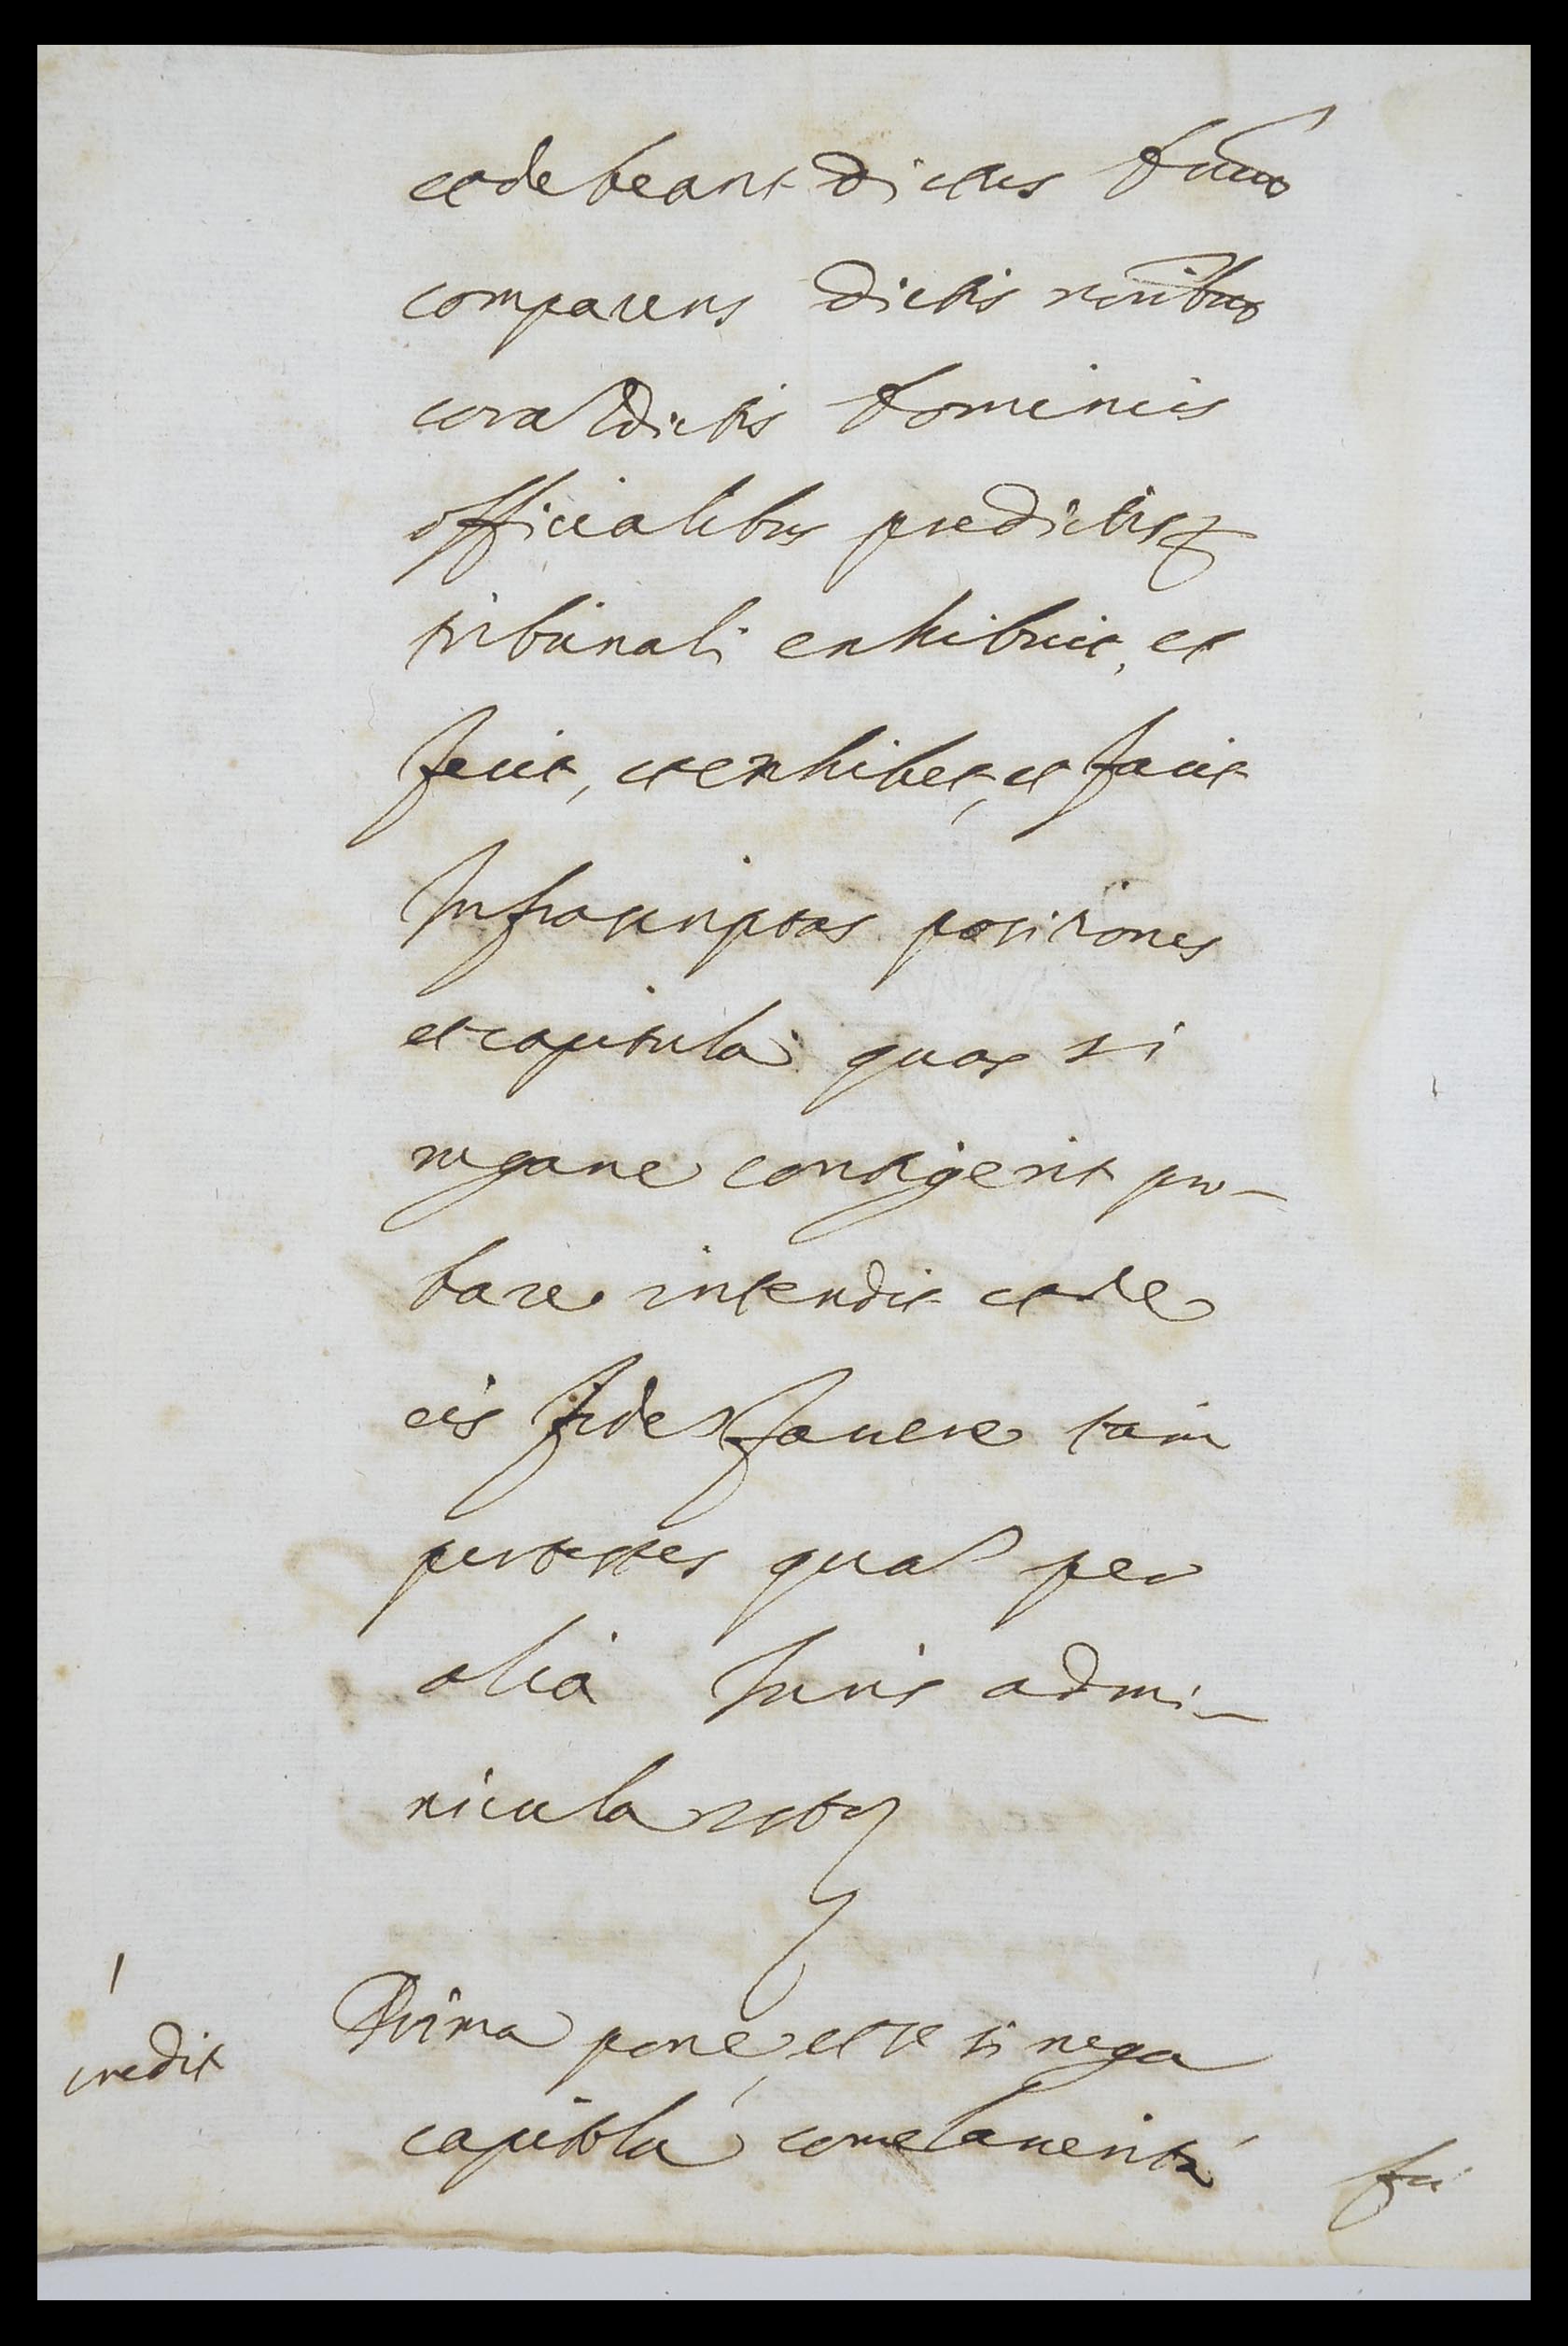 et debeant dictus
comparens dictis noībus
corā dictis Dominis
officialibus predictis
tribunali exhibuit, et
fecit, et exhibet, et facit
Infrascriptas positiones
et capitula quas si
negare contigerit pro-
bare intendit et de
eis fidē facere tam
per testes quā per
alia Iuris admi-
nicula
1
credit
Prima pone, et se si nega
capitola come la verità